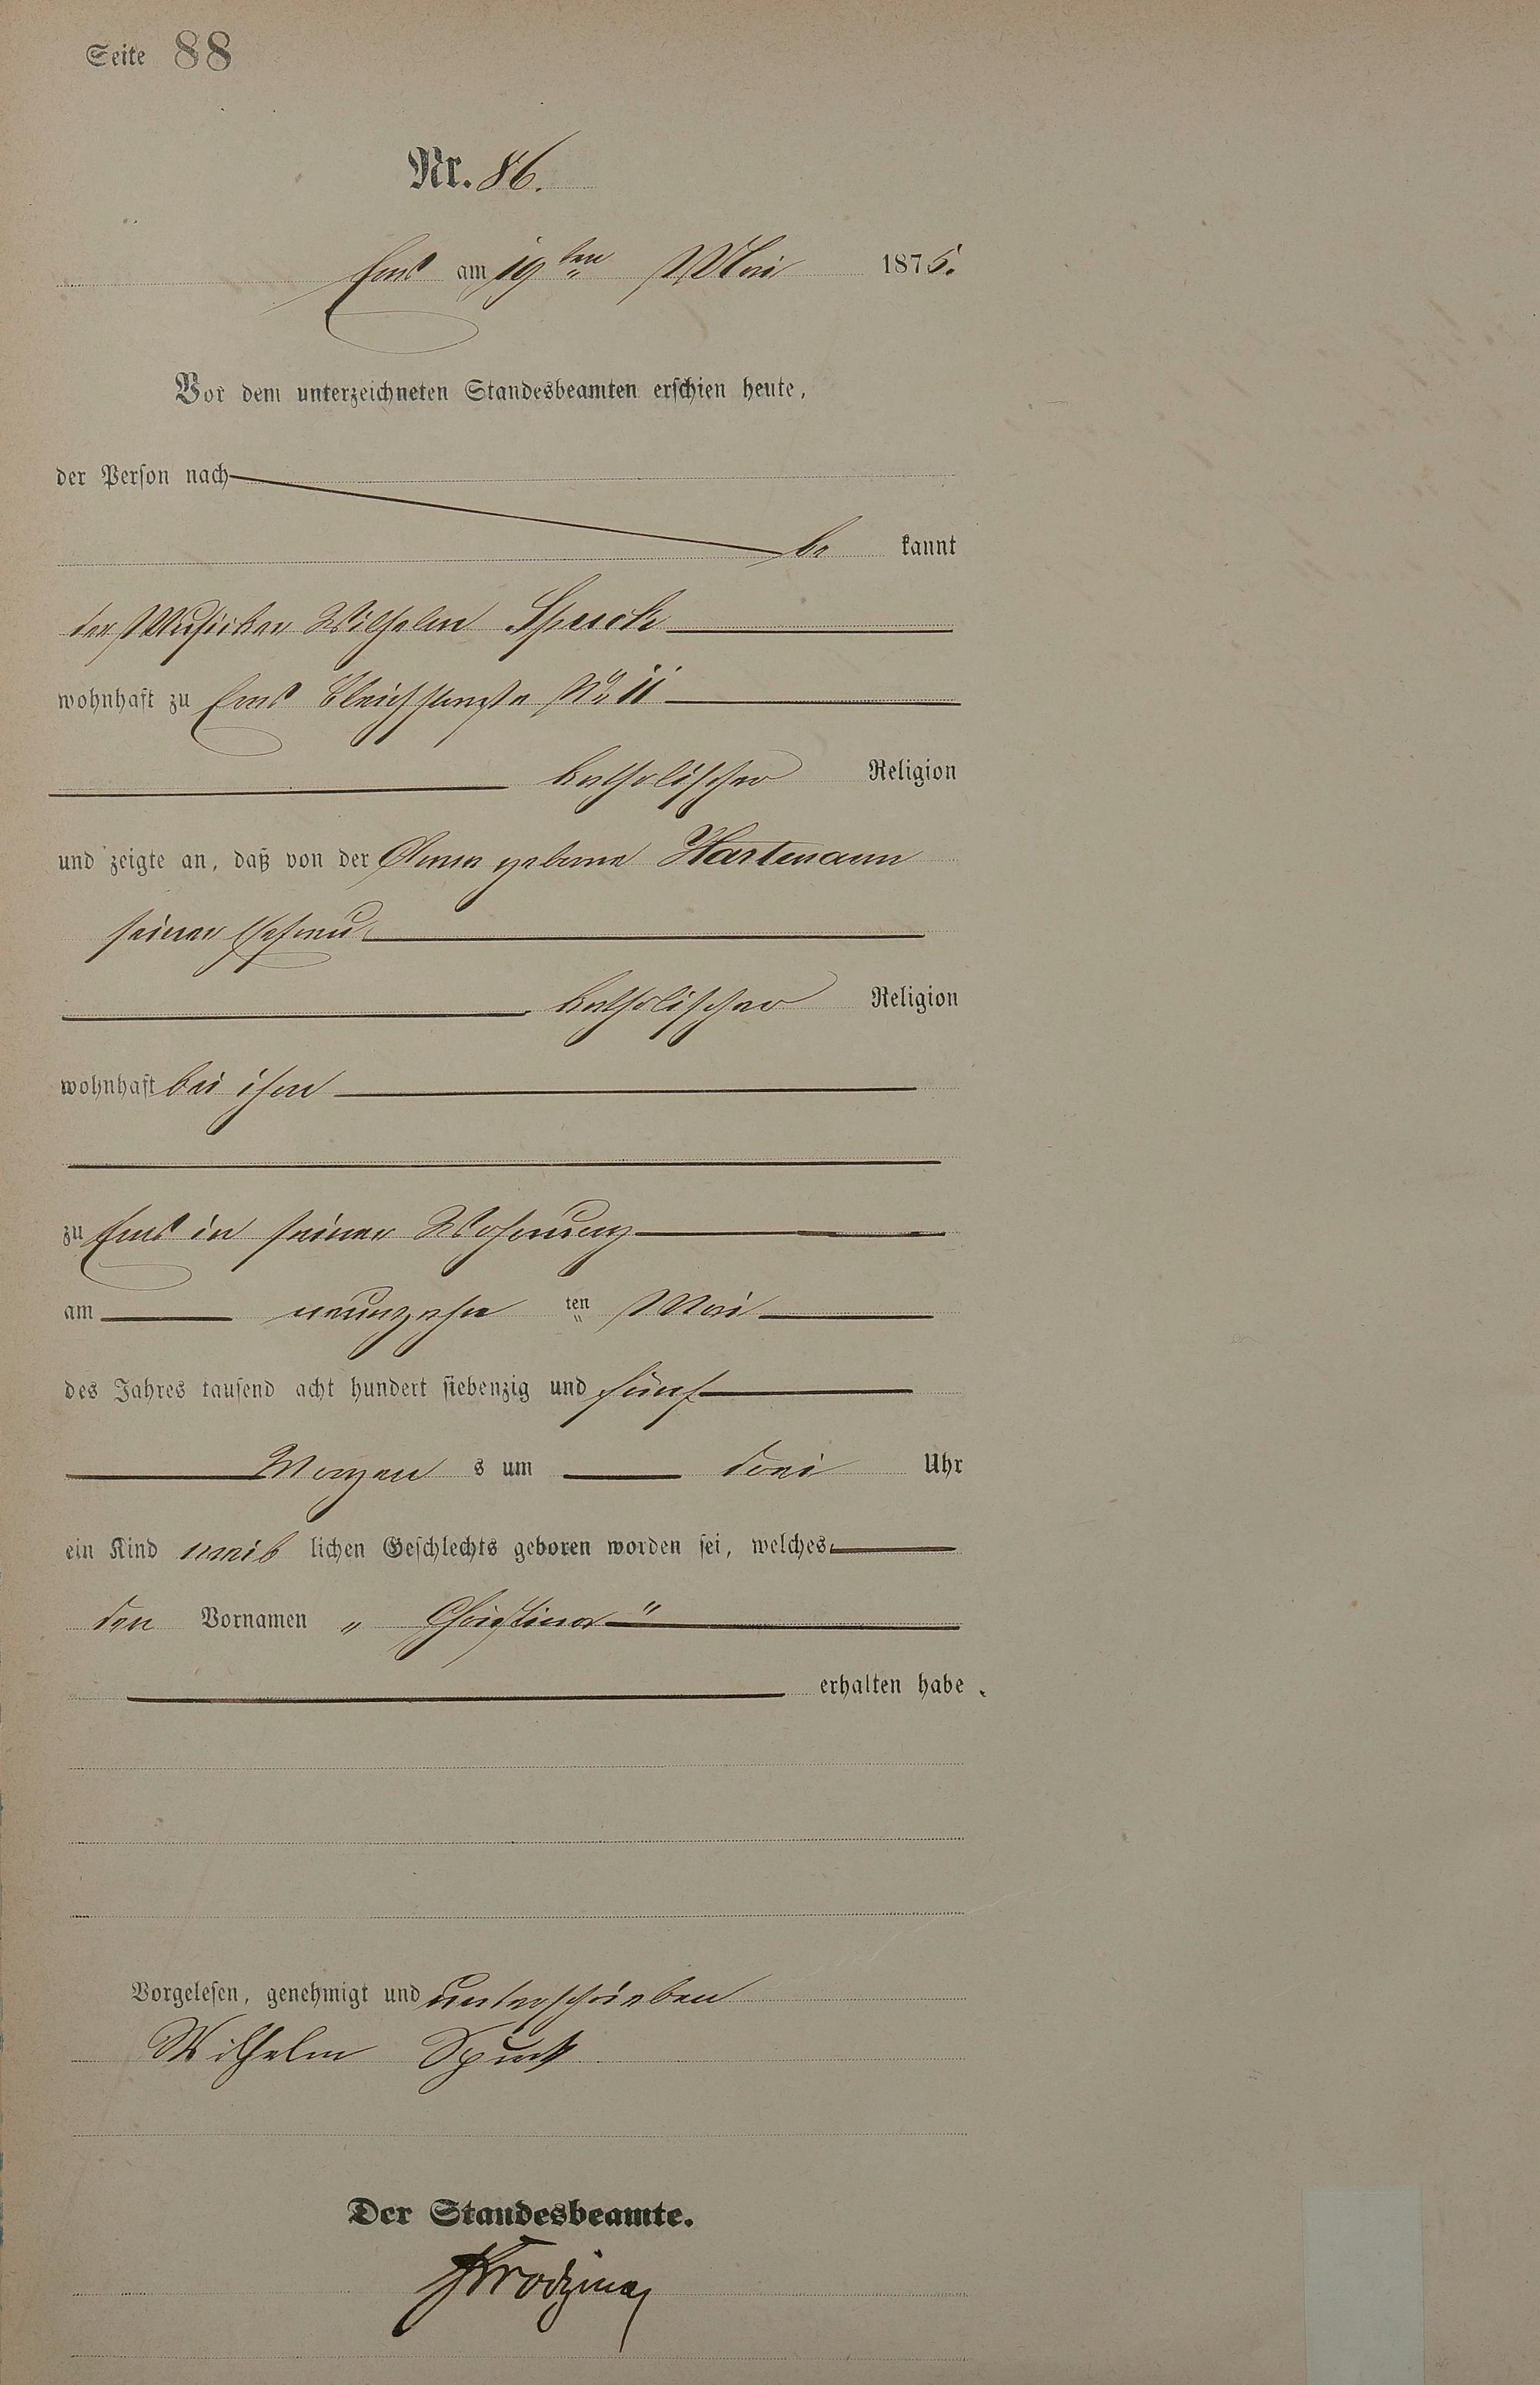 Seite 88
Nr. 86.
Ems am 19ten Mai 1875.
Vor dem unterzeichneten Standesbeamten erschien heute,
der Person nach
be kannt
der Musiker Wilhelm Spuck
wohnhaft zu Ems Bleichstraße No 11
katholischer Religion
und zeigte an, daß von der Anna geborne Hartmann
seiner Ehefrau
katholischer Religion
wohnhaft bei ihm
zu Ems in seiner Wohnung
am neunzehn ten Mai
des Jahres tausend acht hundert siebenzig und fünf
Morgen s um drei Uhr
ein Kind weib lichen Geschlechts geboren worden sei, welches
den Vornamen „ Christina "
erhalten habe.
Vorgelesen, genehmigt und unterschrieben
Wilhelm Spuck
Der Standesbeamte.